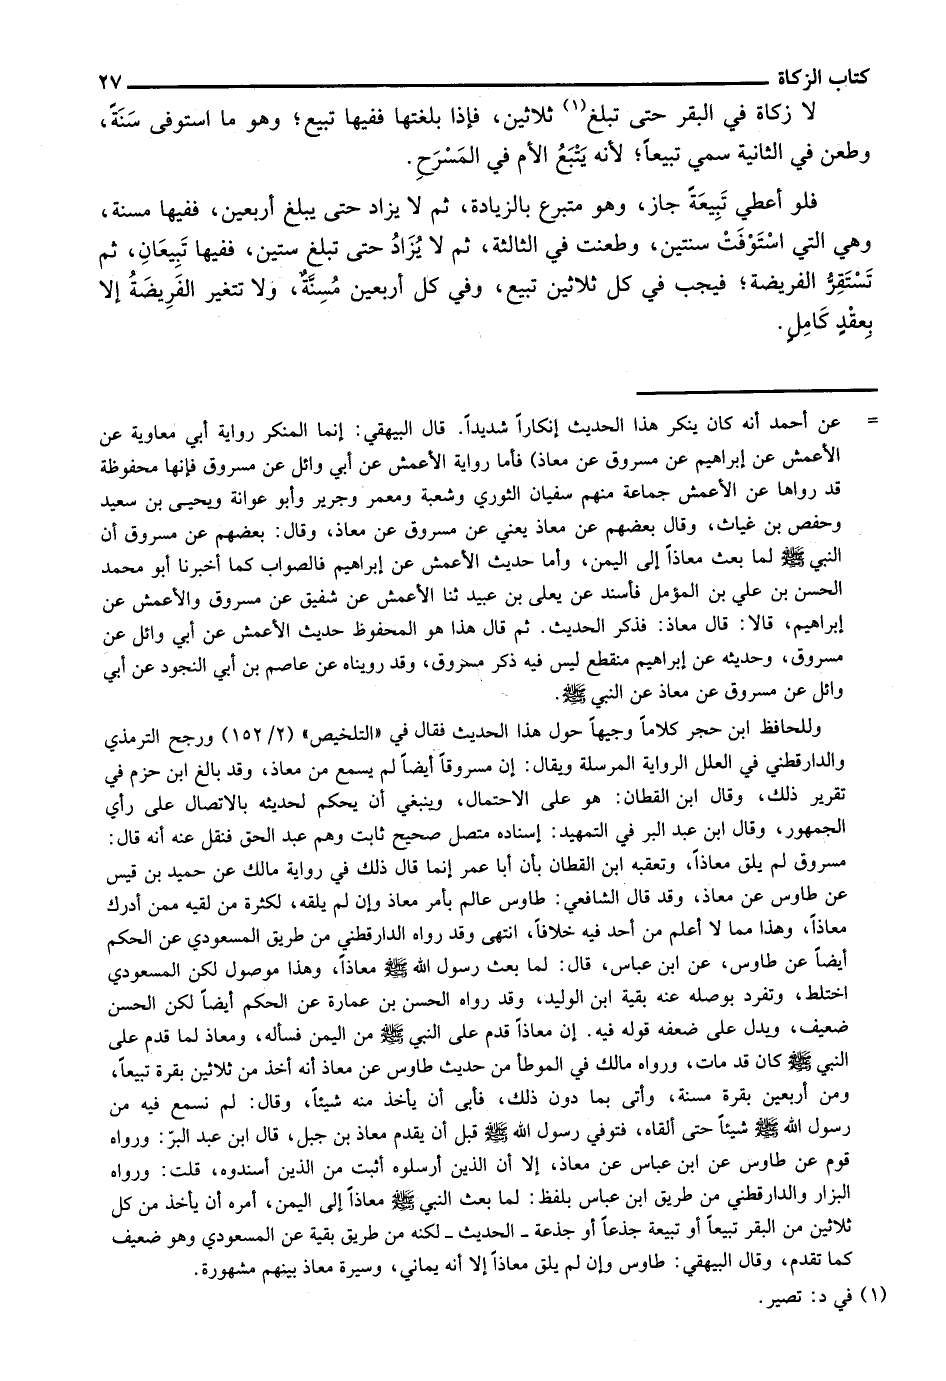 كتاب الزكاة ٢٧
لا زكاة في البقر حتى تبلغ(١) ثلاثين، فإذا بلغتها ففيها تبيع؛ وهو ما استوفى سَنَةً،
وطعن في الثانية سمي تبيعاً؛ لأنه يَتْبَعُ الأم في المَسْرَحِ.
فلو أعطي تَبِيعَةً جاز، وهو متبرع بالزيادة، ثم لا يزاد حتى يبلغ أربعين، ففيها مسنة،
وهي التي اسْتَوْفَتْ سنتين، وطعنت في الثالثة، ثم لا يُزَادُ حتى تبلغ ستين، ففيها تَبِيعَانِ، ثم
تَسْتَقِرُّ الفريضة؛ فيجب في كل ثلاثين تبيع، وفي كل أربعين مُسِنَّةٌ، ولا تتغير الفَرِيضَةُ إلا
بِعقْدٍ كَامِلٍ.
= عن أحمد أنه كان ينكر هذا الحديث إنكاراً شديداً. قال البيهقي: إنما المنكر رواية أبي معاوية عن
الأعمش عن إبراهيم عن مسروق عن معاذ) فأما رواية الأعمش عن أبي وائل عن مسروق فإنها محفوظة
قد رواها عن الأعمش جماعة منهم سفيان الثوري وشعبة ومعمر وجرير وأبو عوانة ويحيى بن سعيد
وحفص بن غياث، وقال بعضهم عن معاذ يعني عن مسروق عن معاذ، وقال: بعضهم عن مسروق أن
النبي ﷺ لما بعث معاذاً إلى اليمن، وأما حديث الأعمش عن إبراهيم فالصواب كما أخبرنا أبو محمد
الحسن بن علي بن المؤمل فأسند عن يعلى بن عبيد ثنا الأعمش عن شفيق عن مسروق والأعمش عن
إبراهيم، قالا: قال معاذ: فذكر الحديث. ثم قال هذا هو المحفوظ حديث الأعمش عن أبي وائل عن
مسروق، وحديثه عن إبراهيم منقطع ليس فيه ذكر مسروق، وقد رويناه عن عاصم بن أبي النجود عن أبي
وائل عن مسروق عن معاذ عن النبي ﷺ.
وللحافظ ابن حجر كلاماً وجيهاً حول هذا الحديث فقال في «التلخيص» (٢/ ١٥٢) ورجح الترمذي
والدارقطني في العلل الرواية المرسلة ويقال: إن مسروقاً أيضاً لم يسمع من معاذ، وقد بالغ ابن حزم في
تقرير ذلك، وقال ابن القطان: هو على الاحتمال، وينبغي أن يحكم لحديثه بالاتصال على رأي
الجمهور، وقال ابن عبد البر في التمهيد: إسناده متصل صحيح ثابت وهم عبد الحق فنقل عنه أنه قال:
مسروق لم يلق معاذاً، وتعقبه ابن القطان بأن أبا عمر إنما قال ذلك في رواية مالك عن حميد بن قيس
عن طاوس عن معاذ، وقد قال الشافعي: طاوس عالم بأمر معاذ وإن لم يلقه، لكثرة من لقيه ممن أدرك
معاذاً، وهذا مما لا أعلم من أحد فيه خلافاً، انتهى وقد رواه الدارقطني من طريق المسعودي عن الحكم
أيضاً عن طاوس، عن ابن عباس، قال: لما بعث رسول الله ﷺ معاذاً، وهذا موصول لكن المسعودي
اختلط، وتفرد بوصله عنه بقية ابن الوليد، وقد رواه الحسن بن عمارة عن الحكم أيضاً لكن الحسن
ضعيف، ويدل على ضعفه قوله فيه. إن معاذاً قدم على النبي ﷺ من اليمن فسأله، ومعاذ لما قدم على
النبي ﷺ كان قد مات، ورواه مالك في الموطأ من حديث طاوس عن معاذ أنه أخذ من ثلاثين بقرة تبيعاً،
ومن أربعين بقرة مسنة، وأتى بما دون ذلك، فأبى أن يأخذ منه شيئاً، وقال: لم نسمع فيه من
رسول الله ﷺ شيئاً حتى ألقاه، فتوفي رسول الله ﷺ قبل أن يقدم معاذ بن جبل، قال ابن عبد البرّ: ورواه
قوم عن طاوس عن ابن عباس عن معاذ، إلا أن الذين أرسلوه أثبت من الذين أسندوه، قلت: ورواه
البزار والدارقطني من طريق ابن عباس بلفظ: لما بعث النبي ﷺ معاذاً إلى اليمن، أمره أن يأخذ من كل
ثلاثين من البقر تبيعاً أو تبيعة جذعاً أو جذعة ـ الحديث ـ لكنه من طريق بقية عن المسعودي وهو ضعيف
كما تقدم، وقال البيهقي: طاوس وإن لم يلق معاذاً إلا أنه يماني، وسيرة معاذ بينهم مشهورة.
(١) في د: تصير.